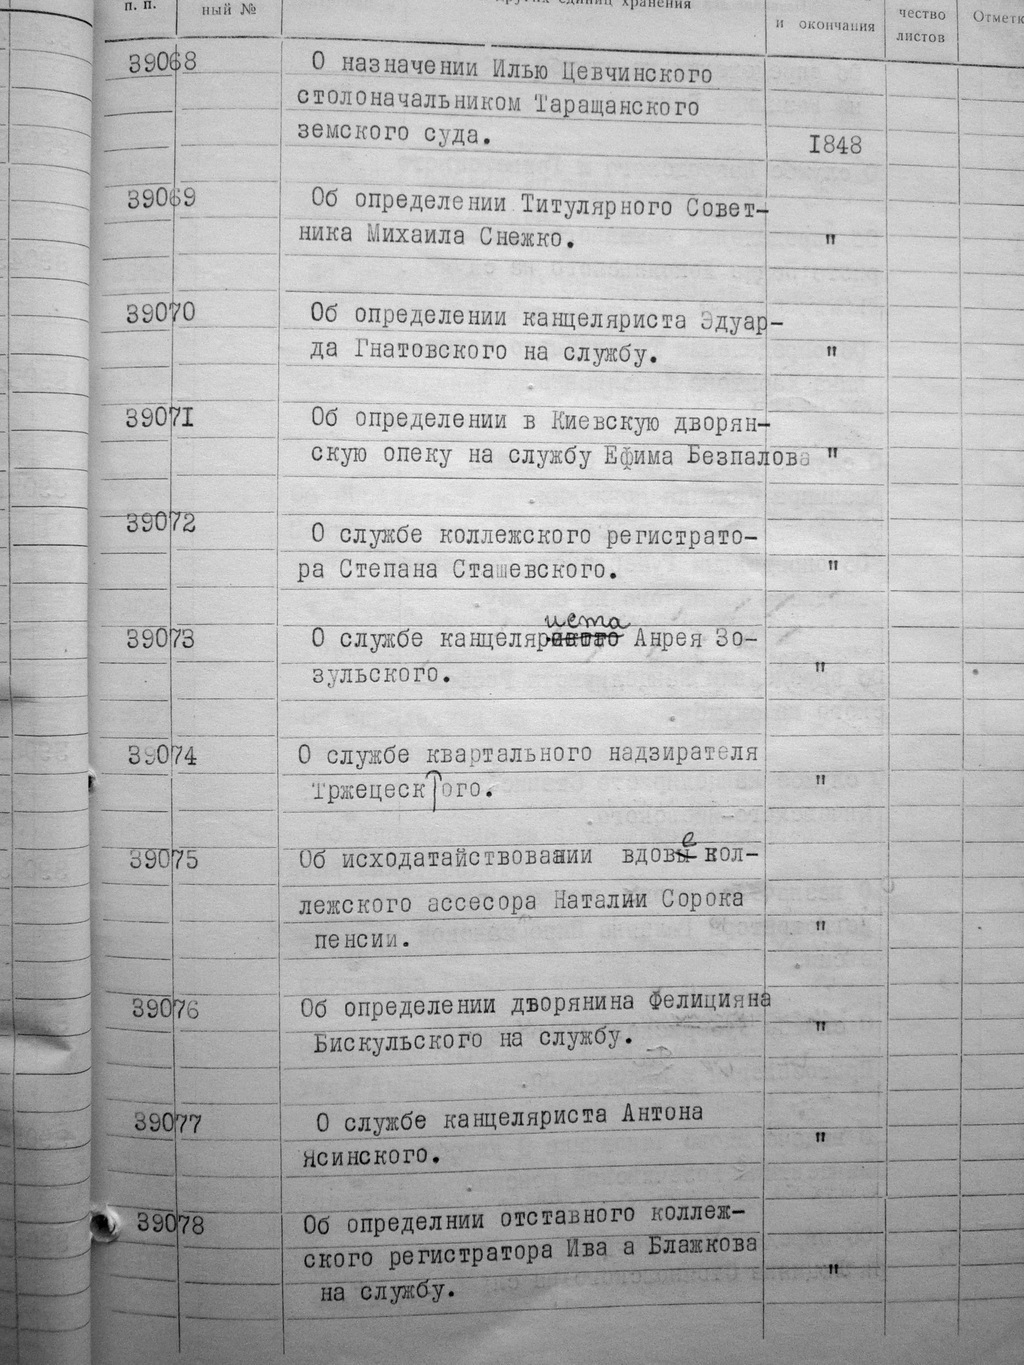 п. п.
ный №
других единиц хранения
и окончания
чество
листов
Отметк
39068 О назначении Илью Цевчинского
столоначальником Таращанского
земского суда. 1848
39069 Об определении Титулярного Совет-
ника Михаила Снежко. "
39070 Об определении канцеляриста Эдуар-
да Гнатовского на службу. "
39071 Об определении в Киевскую дворян-
скую опеку на службу Ефима Безпалова "
39072 О службе коллежского регистрато-
ра Степана Сташевского. "
иста
39073 О службе канцеляр Анрея Зо-
зульского. "
39074 О службе квартального надзирателя
Тржецеского. "
е
39075 Об исходатайствовании вдовы кол-
лежского ассесора Наталии Сорока
пенсии. "
39076 Об определении дворянина Фелицияна
Бискульского на службу. "
39077 О службе канцеляриста Антона
Ясинского. "
39078 Об определнии отставного коллеж-
ского регистратора Ива а Блажкова
на службу. "